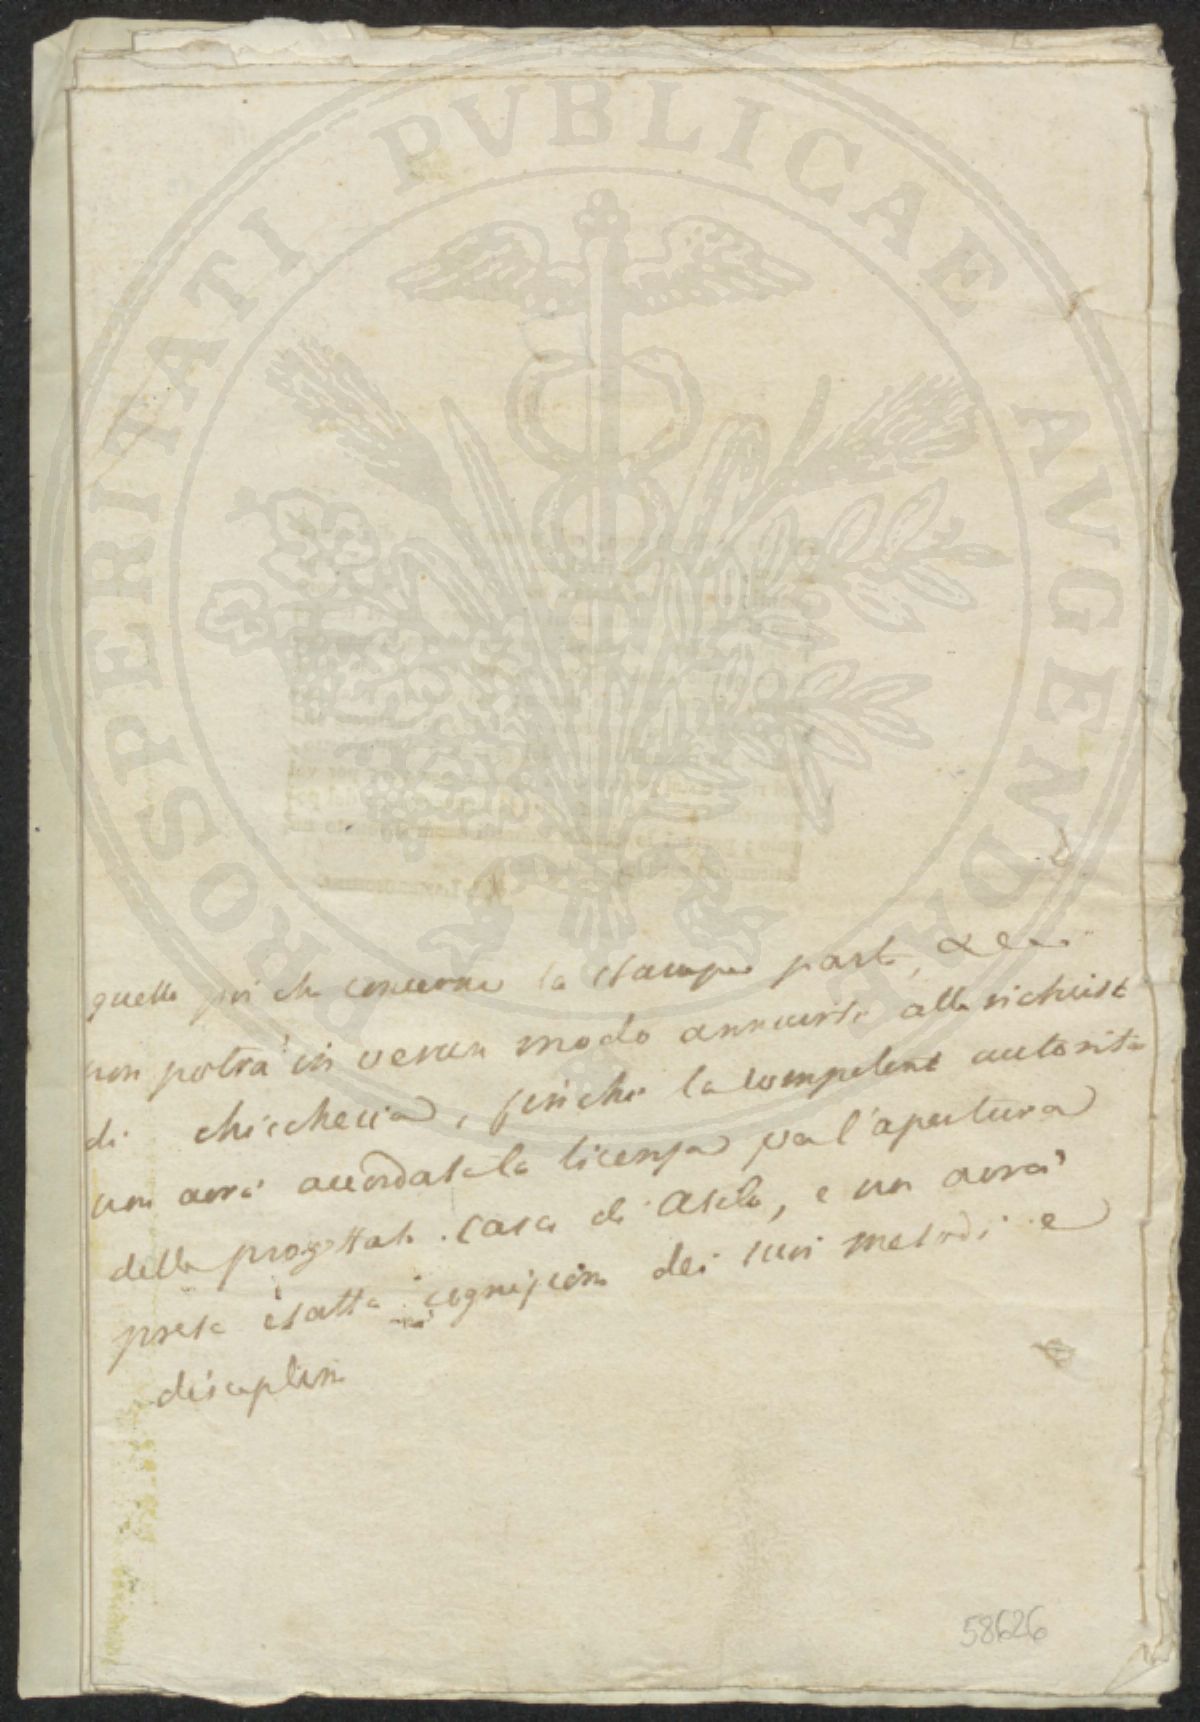 PROSPERITATI PVBLICAE AVGENDAE
quello poi che concerne la stampa parte,
non potrà in verun modo annuirsi alle richieste
di chicchessia, finchè la competente autorità
non avrà accordata la licenza per l'apertura
della progettata casa di Asilo, e non avrà
presa esatta cognizione dei suoi metodi e
discipline
58626